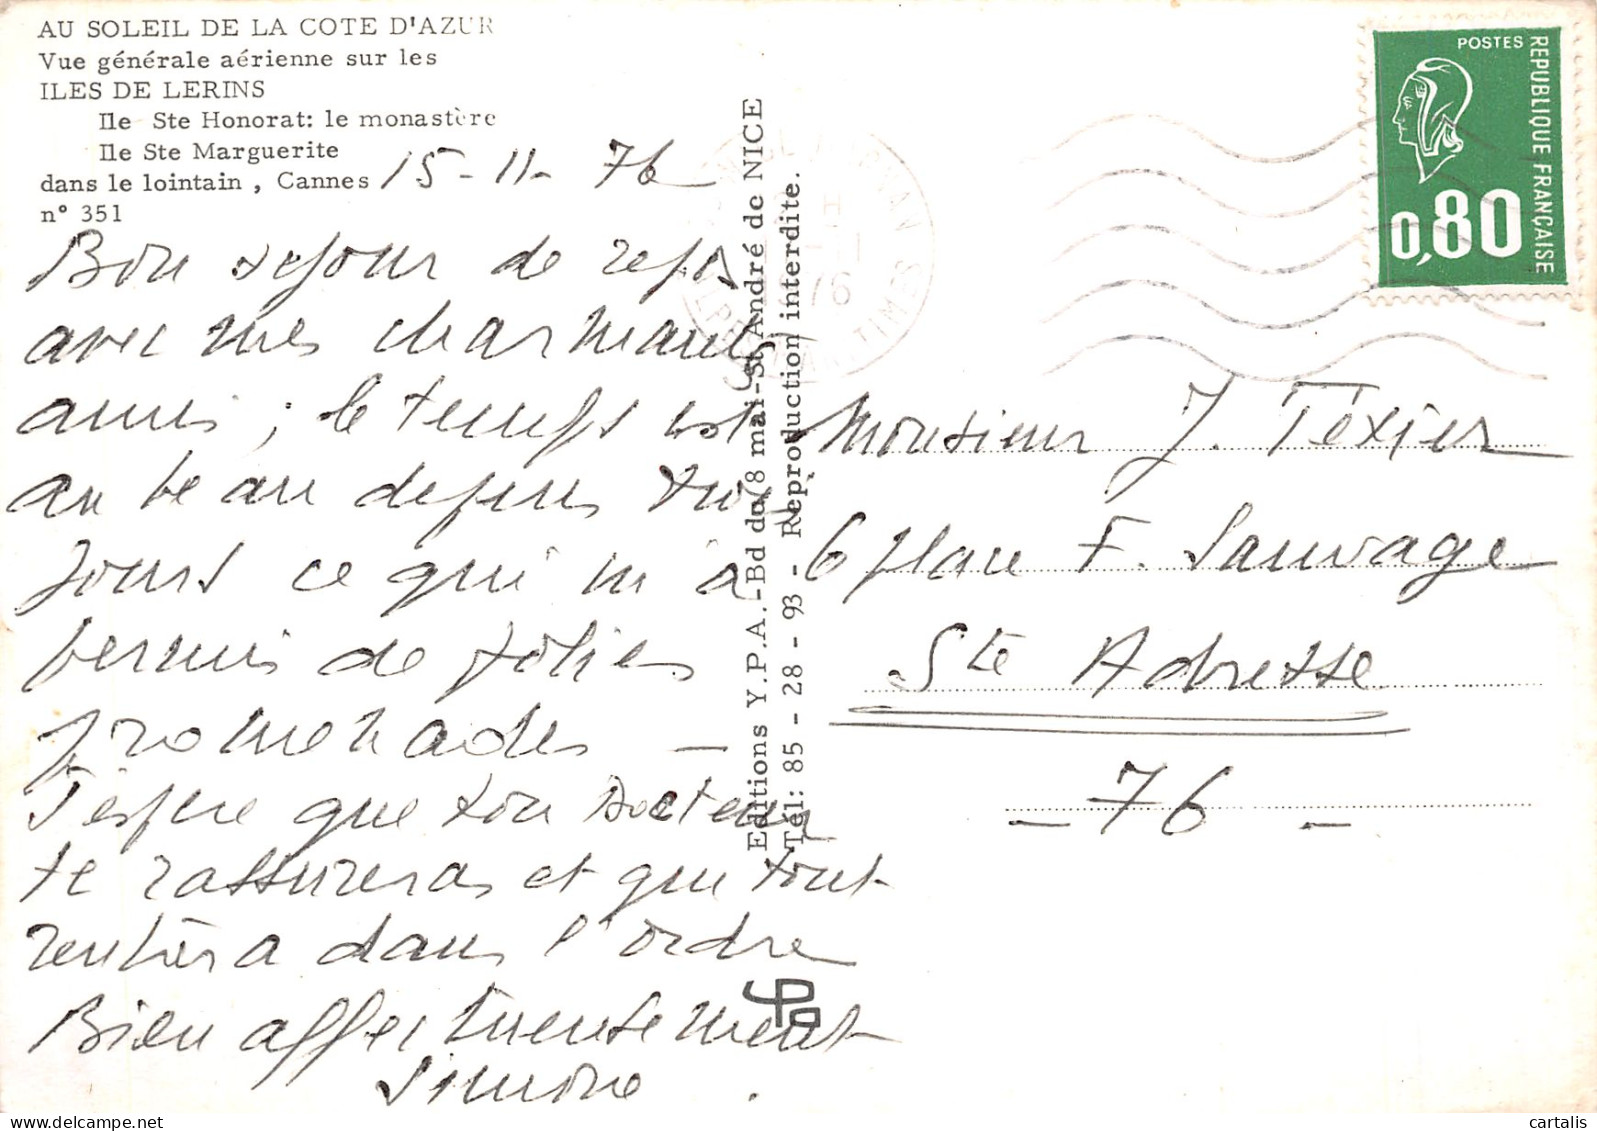 AU SOLEIL DE LA COTE D'AZUR
Vue générale aérienne sur les
ILES DE LERINS
Ile Ste Honorat: le monastère
Ile Ste Marguerite
dans le lointain , Cannes
n° 351
15-11-76
Bon séjour de repos
avec mes charmants
amis ; le temps est
au beau depuis trois
jours ce qui m'a
permis de jolies
promenades —
J'espère que ton Docteur
te rassurera et que tout
rentrera dans l'ordre
Bien affectueusement
Simone .
Editions Y.P.A.-Bd du 8 mai-St André de NICE
Tél: 85 - 28 - 93 - Reproduction interdite.
YPa
POSTES
REPUBLIQUE FRANÇAISE
0,80
Monsieur J. Texier
6 place F. Sauvage
Ste Adresse
- 76 -
cartalis